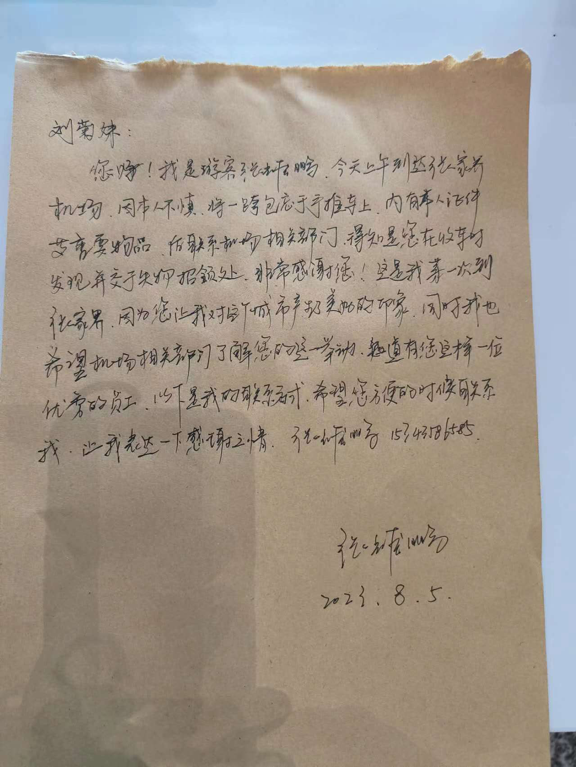 刘菊妹：
您好！我是游客张 鹏，今天上午到达张家界
机场，因本人不慎，将一挎包忘于手推车上，内有本人证件
及重要物品，后联系机场相关部门，得知是您在收车时
发现并交于失物招领处，非常感谢您！这是我第一次到
张家界，因为您让我对这个城市产生了美好的印象，同时我也
希望机场相关部门了解您的这一举动，知道有您这样一位
优秀的员工，以下是我的联系方式，希望您方便的时候联系
我，让我表达一下感谢之情。张 鹏
张 鹏
2023.8.5.